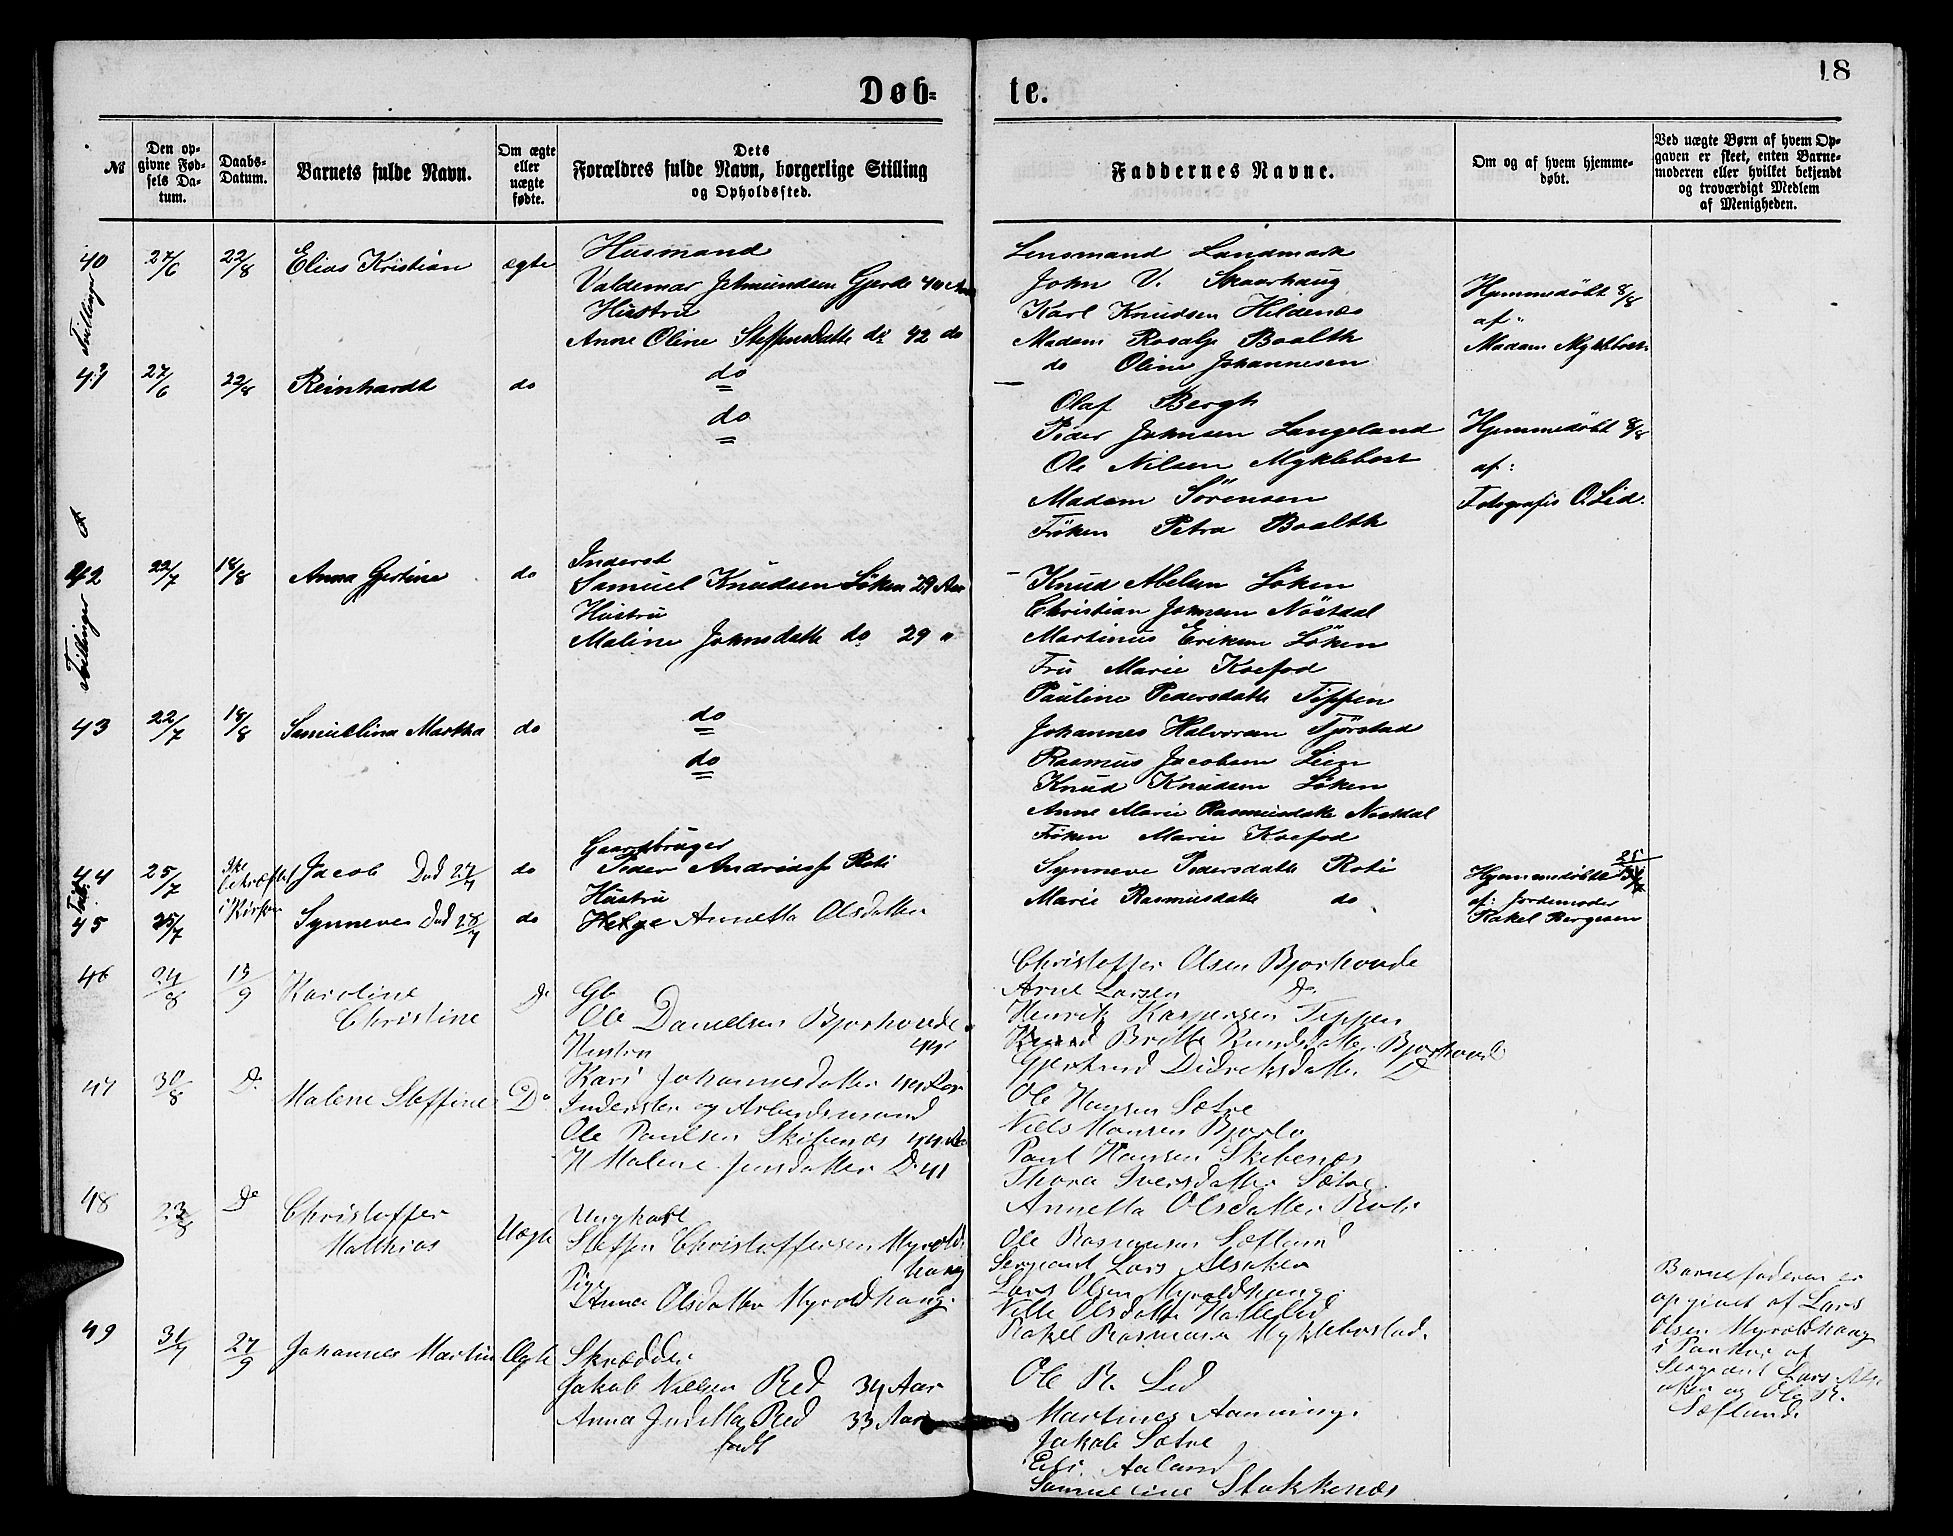 18
Døb-
te.
№
Den op-
givne Fød-
sels Da-
tum.
Daabs-
Datum.
Barnets fulde Navn.
Om ægte
eller
uægte
fødte.
Dets
Forældres fulde Navn, borgerlige Stilling
og Opholdssted.
Faddernes Navne.
Om og af hvem hjemme-
døbt.
Ved uægte Børn af hvem Op-
gaven er skeet, enten Barne-
moderen eller hvilket bekjendt
og troværdigt Medlem
af Menigheden.
40 27/6 22/8 Elias Kristian ægte
Husmand
Valdemar Gjerde 40 Aar
Hustru
Anne Oline Steffensdatte do 42 do
Lensmand Landmark
John V. Skaarhaug
Karl Knudsen Hildenæs
Madam Rosalje Baalth
do Oline Johannesen
Hjemmedøbt 8/8
af
Madam Myklebost
Tvillinger
41 27/6 22/8 Reinhardt do
do
do
Olaf Bergh
Peder Johnsen Langeland
Ole Nilsen Myklebost
Madam Sörensen
Fröken Petra Baalth
Hjemmedøbt 8/8
af:
Fotografis O. Lid.
42 22/7 18/8 Anna Gjertine do
Inderst
Samuel Knudsen Löken 29 Aar
Hustru
Maline Johnsdatte do 29 "
Knud Abelsen Löken
Christian Johnsen Nöstdal
Martinus Eriksen Löken
Fru Marie Koefod
Pauline Pedersdatte Tippen
Tvillinger
43 22/7 18/8 Samuelina Martha do
do
do
Johannes Halvorsen Fjörstad
Rasmus Jacobsen Lien
Knud Knudsen Löken
Anne Marie Rasmusdatte Nöstdal
Fröken Marie Koefod
44 25/7 Jacob Död 27/7 do
i Kirken
Gaardbruger
Peder Andreass Roti
Hustru
Synneve Pedersdatte Roti
Marie Rasmusdatte do
Hjemmedöbt 25/7
af: Jordemoder
Rakel Bergesen
45 25/7 Synneve Död 28/7 do
Annetta Olsdatter
46 24/8 13/9 Karoline
Christine Do
Gb
Ole Danielsen Bjørhovde
Hustru
Kari Johannesdatter 44 Aar
Christoffer Olsen Bjørhovde
Arne Larsen Do
Henrik Kaspersen Tippen
Britte Knudsdatter Bjørhovde
Gjertrud Didriksdatter Do
47 30/8 Do Malene Steffine Do
Inderster og Arbeidsmand
Ole Paulsen Skibenæs 44 Aar
H Malene Jensdatter Do 41
Ole Hansen Sætre
Niels Hansen Bjørlo
Paul Hansen Skibenæs
Thora Iversdatter Sætre
Annetta Olsdatter Roti
48 23/8 Do Christoffer
Matthias Uægte
Ungkarl
Steffen Christoffersen Myrold-
haug
Pige
Anna Olsdatter Myroldhaug.
Ole Rasmussen Sæflund
Sergeant Lars Alsaker
Lars Olsen Myroldhaug
Olsdatte
Rakel Rasmusen Myklebostad.
Barnefaderen er
opgivet af Lars
Olsen Myroldhaug
i Paahør af
Sergeant Lars Als-
aker og Ole R.
Sæflund.
49 31/7 27/9 Johannes Martin Ægte
Skrædder
Jakob Nielsen Red 34 Aar
Anna Red 33 Aar
født
Ole R. Lid
Martines Aanning.
Jakob Sætre
Aaland
Samueline Stokkenæs